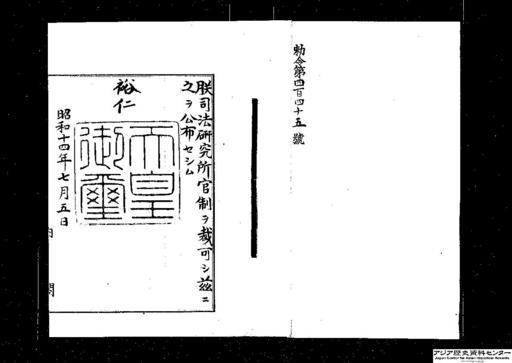 勅令第四百四十五號
朕司法研究所官制ヲ裁可シ茲ニ
之ヲ公布セシム
裕仁
天皇
御璽
昭和十四年七月五日
内閣
アジア歴史資料センター
Japan Center for Asian Historical Records